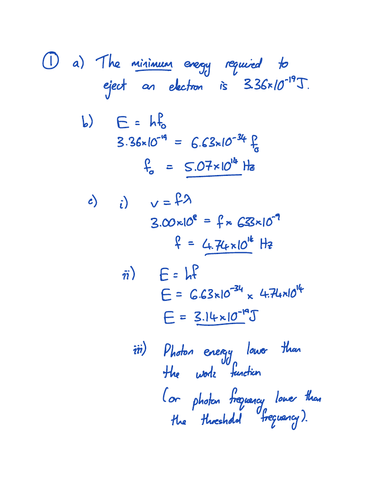 ① a) The minimum energy required to
eject an electron is 3.36×10⁻¹⁹J.
b) E = hf₀
3.36×10⁻¹⁹ = 6.63×10⁻³⁴ f₀
f₀ = 5.07×10¹⁴ Hz
c) i) v = fλ
3.00×10⁸ = f × 633×10⁻⁹
f = 4.74×10¹⁴ Hz
ii) E = hf
E = 6.63×10⁻³⁴ × 4.74×10¹⁴
E = 3.14×10⁻¹⁹J
iii) Photon energy lower than
the work function
(or photon frequency lower than
the threshold frequency).